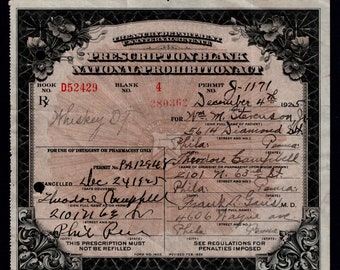 TREASURY DEPARTMENT
U.S. INTERNAL REVENUE
PRESCRIPTION BLANK
NATIONAL PROHIBITION ACT
BOOK NO. D52429 BLANK NO. 4 PERMIT NO. J-1171
280362 December 4th 1925
Rx Whiskey
FOR Wm. M. Stevenson Jr
5614 Diamond St
Phila Penna
FOR USE OF DRUGGIST OR PHARMACIST ONLY
PERMIT NO. PA 12948 Theodore Campbell
CANCELLED Dec 24 1925 2101 N. 63rd St
Phila Penna
Theodore Campbell Frank L. M.D.
2101 N 63 St 4606 Wayne ave
Phil Pa Phila Penna
THIS PRESCRIPTION MUST NOT BE REFILLED
SEE REGULATIONS FOR PENALTIES IMPOSED
FORM NO. 1403 REVISED FEB. 1925